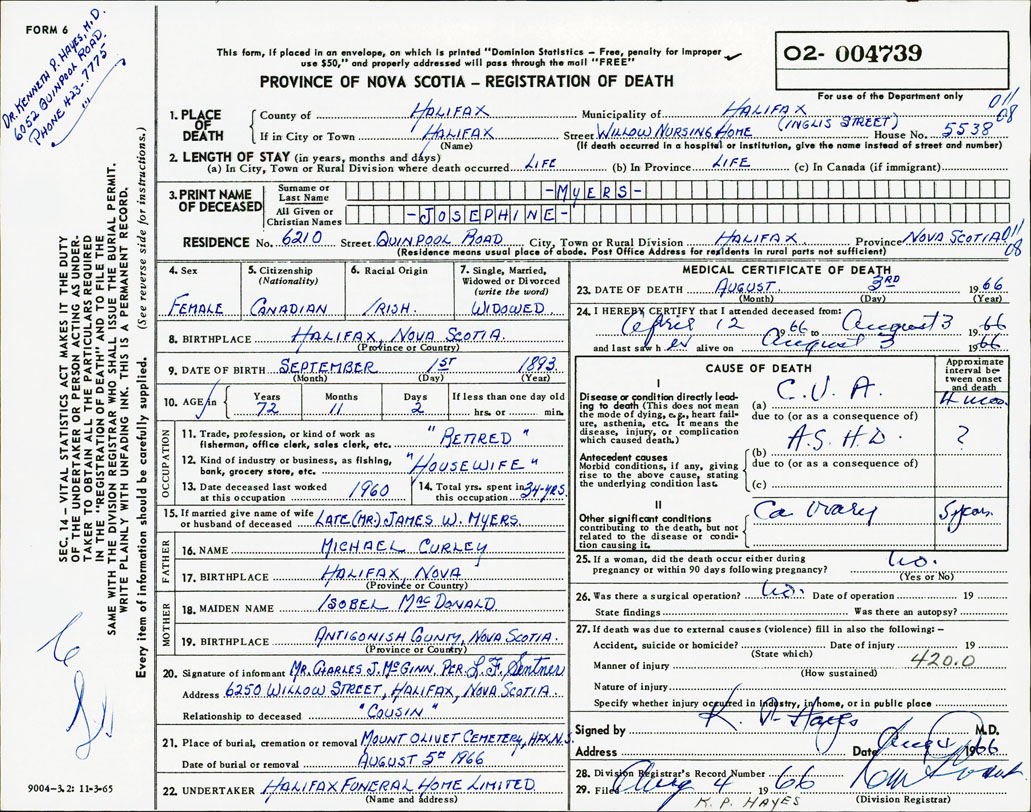 FORM 6
DR. KENNETH P. HAYES, M.D.
6052 QUINPOOL ROAD.
PHONE 423-7775
This form, if placed in an envelope, on which is printed "Dominion Statistics – Free, penalty for improper
use $50," and properly addressed will pass through the mail "FREE"
PROVINCE OF NOVA SCOTIA – REGISTRATION OF DEATH
02- 004739
For use of the Department only
011
08
1. PLACE OF DEATH
County of HALIFAX Municipality of HALIFAX
(INGLIS STREET)
If in City or Town HALIFAX Street WILLOW NURSING HOME House No. 5538
(Name) (If death occurred in a hospital or institution, give the name instead of street and number)
2. LENGTH OF STAY (in years, months and days)
(a) In City, Town or Rural Division where death occurred LIFE (b) In Province LIFE (c) In Canada (if immigrant)
3. PRINT NAME OF DECEASED
Surname or Last Name -MYERS-
All Given or Christian Names -JOSEPHINE-
RESIDENCE No. 6210 Street QUINPOOL ROAD City, Town or Rural Division HALIFAX Province NOVA SCOTIA 011
08
(Residence means usual place of abode. Post Office Address for residents in rural parts not sufficient)
4. Sex
FEMALE
5. Citizenship
(Nationality)
CANADIAN
6. Racial Origin
IRISH.
7. Single, Married,
Widowed or Divorced
(write the word)
WIDOWED
8. BIRTHPLACE HALIFAX, NOVA SCOTIA.
(Province or Country)
9. DATE OF BIRTH SEPTEMBER 1ST 1893
(Month) (Day) (Year)
10. AGE in Years Months Days If less than one day old
72 11 2 hrs. or min.
OCCUPATION
11. Trade, profession, or kind of work as
fisherman, office clerk, sales clerk, etc. "RETIRED"
12. Kind of industry or business, as fishing,
bank, grocery store, etc. "HOUSEWIFE"
13. Date deceased last worked
at this occupation 1960
14. Total yrs. spent in
this occupation 34-YRS.
15. If married give name of wife
or husband of deceased LATE (MR.) JAMES W. MYERS.
FATHER
16. NAME MICHAEL CURLEY
17. BIRTHPLACE HALIFAX, NOVA
(Province or Country)
MOTHER
18. MAIDEN NAME ISOBEL MACDONALD
19. BIRTHPLACE ANTIGONISH COUNTY, NOVA SCOTIA.
(Province or Country)
20. Signature of informant MR. CHARLES J. MCGINN. PER. L. F. Sentner
Address 6250 WILLOW STREET, HALIFAX, NOVA SCOTIA.
Relationship to deceased "COUSIN"
21. Place of burial, cremation or removal MOUNT OLIVET CEMETERY, HFX, N.S.
Date of burial or removal AUGUST 5TH 1966
22. UNDERTAKER HALIFAX FUNERAL HOME LIMITED.
(Name and address)
MEDICAL CERTIFICATE OF DEATH
23. DATE OF DEATH AUGUST 3RD 1966
(Month) (Day) (Year)
24. I HEREBY CERTIFY that I attended deceased from:
April 12 1966 to August 3 1966
and last saw her alive on August 3 1966
CAUSE OF DEATH
Approximate
interval be-
tween onset
and death
I
Disease or condition directly lead-
ing to death (This does not mean
the mode of dying, e.g., heart fail-
ure, asthenia, etc. It means the
disease, injury, or complication
which caused death.)
(a) C.V.A.
due to (or as a consequence of)
Antecedent causes
Morbid conditions, if any, giving
rise to the above cause, stating
the underlying condition last.
A.S.H.D. ?
(b)
due to (or as a consequence of)
(c)
II
Other significant conditions
contributing to the death, but not
related to the disease or condi-
tion causing it.
Ca Ovary 5 years
25. If a woman, did the death occur either during
pregnancy or within 90 days following pregnancy? No.
(Yes or No)
26. Was there a surgical operation? No. Date of operation 19
State findings Was there an autopsy?
27. If death was due to external causes (violence) fill in also the following: –
Accident, suicide or homicide? Date of injury 19
(State which)
420.0
Manner of injury
(How sustained)
Nature of injury
Specify whether injury occurred in industry, in home, or in public place
Signed by K. P. Hayes M.D.
Address Date 1966
28. Division Registrar's Record Number
29. Filed Aug 4 1966
K. P. HAYES
(Division Registrar)
SEC. 14 – VITAL STATISTICS ACT MAKES IT THE DUTY
OF THE UNDERTAKER OR PERSON ACTING AS UNDER-
TAKER TO OBTAIN ALL THE PARTICULARS REQUIRED
IN THE "REGISTRATION OF DEATH" AND TO FILE THE
SAME WITH THE DIVISION REGISTRAR WHO SHALL ISSUE THE BURIAL PERMIT.
WRITE PLAINLY WITH UNFADING INK. THIS IS A PERMANENT RECORD.
Every item of information should be carefully supplied. (See reverse side for instructions.)
9004–3.2: 11-3-65